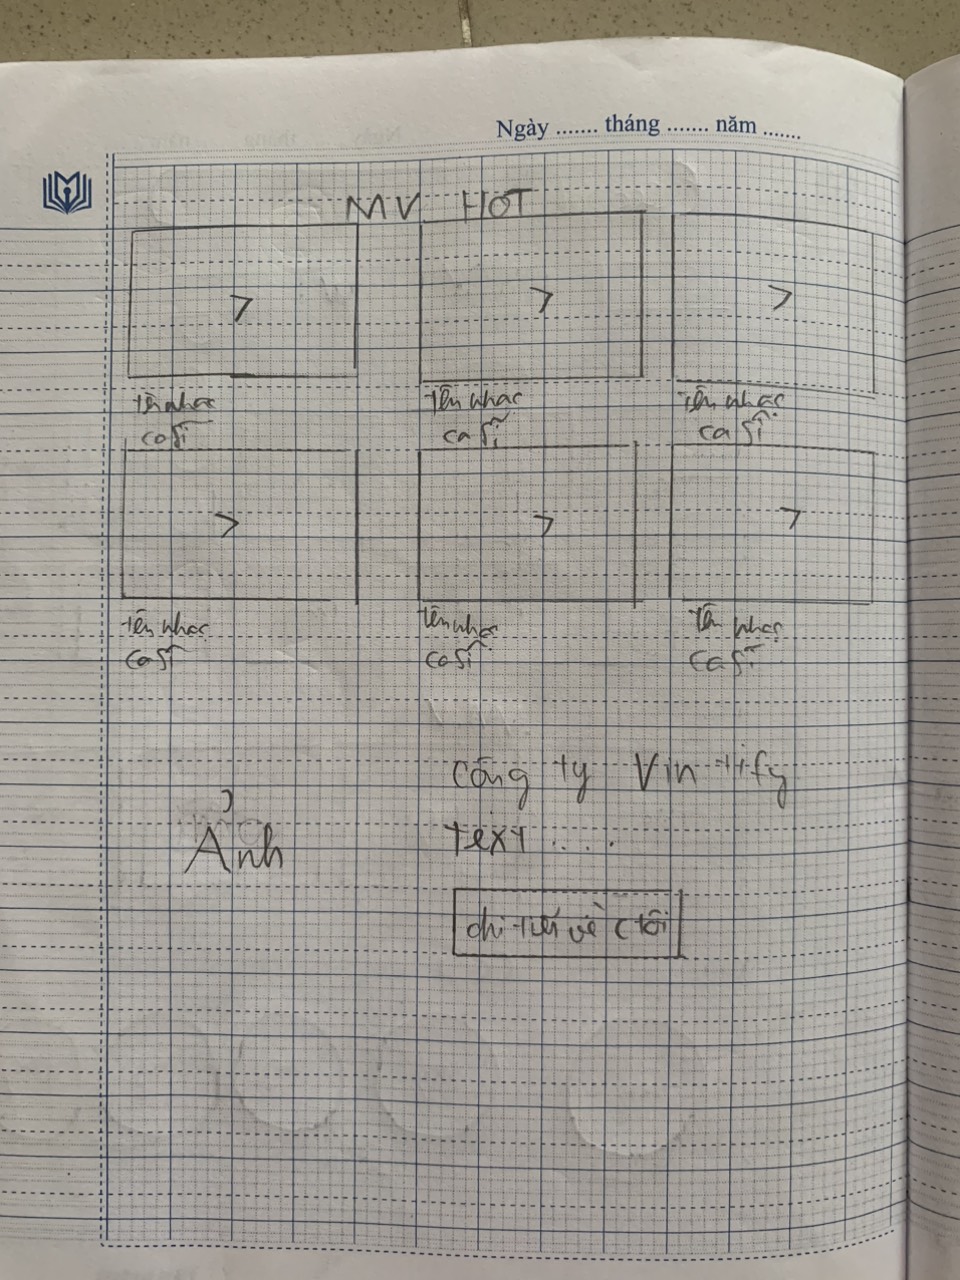 Ngày ....... tháng ....... năm .......
MV HOT
>
>
>
tên nhạc
ca sĩ
tên nhạc
ca sĩ
tên nhạc
ca sĩ
>
>
>
tên nhạc
ca sĩ
tên nhạc
ca sĩ
tên nhạc
ca sĩ
Ảnh
Công ty Vin tify
text ....
chi tiết về ctôi